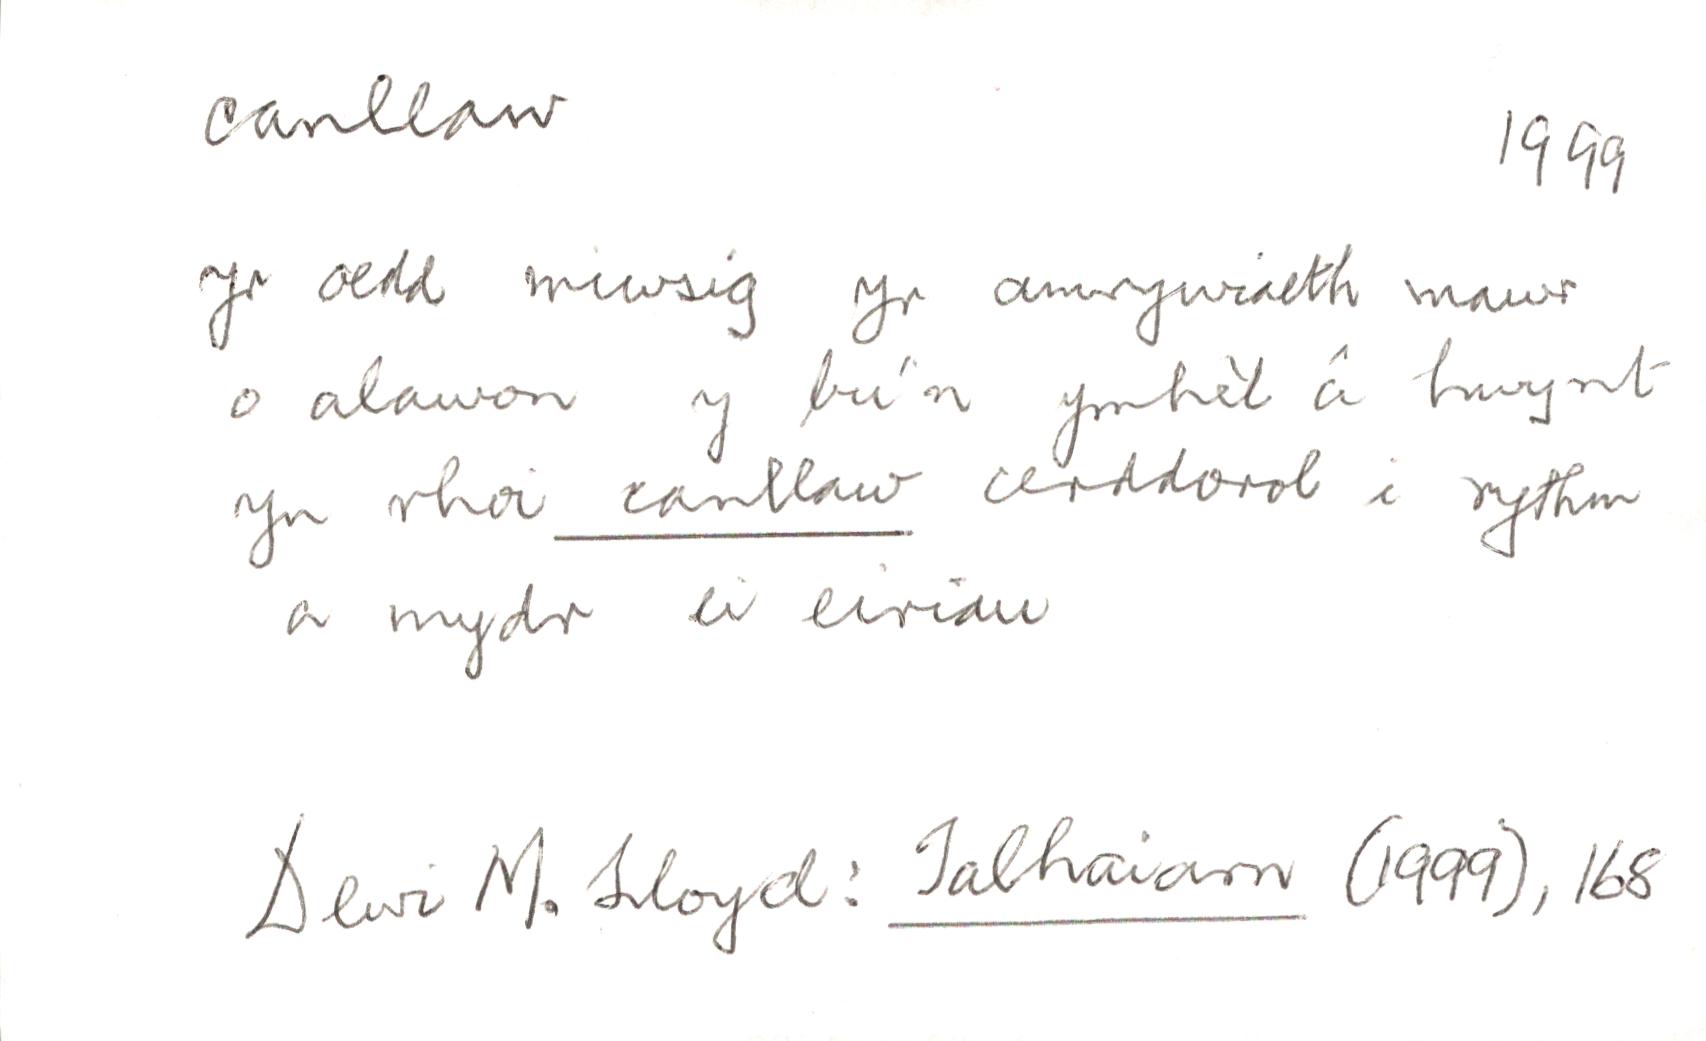 canllaw
1999
yr oedd miwsig yr amrywiaeth mawr
o alawon y bu'n ymhèl â hwynt
yn rhoi canllaw cerddorol i rythm
a mydr ei eiriau
Dewi M. Lloyd: Talhaiarn (1999), 168